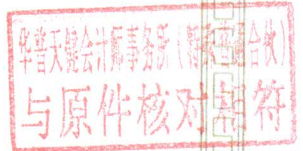 华普天健会计师事务所（特殊普通合伙）
与原件核对相符